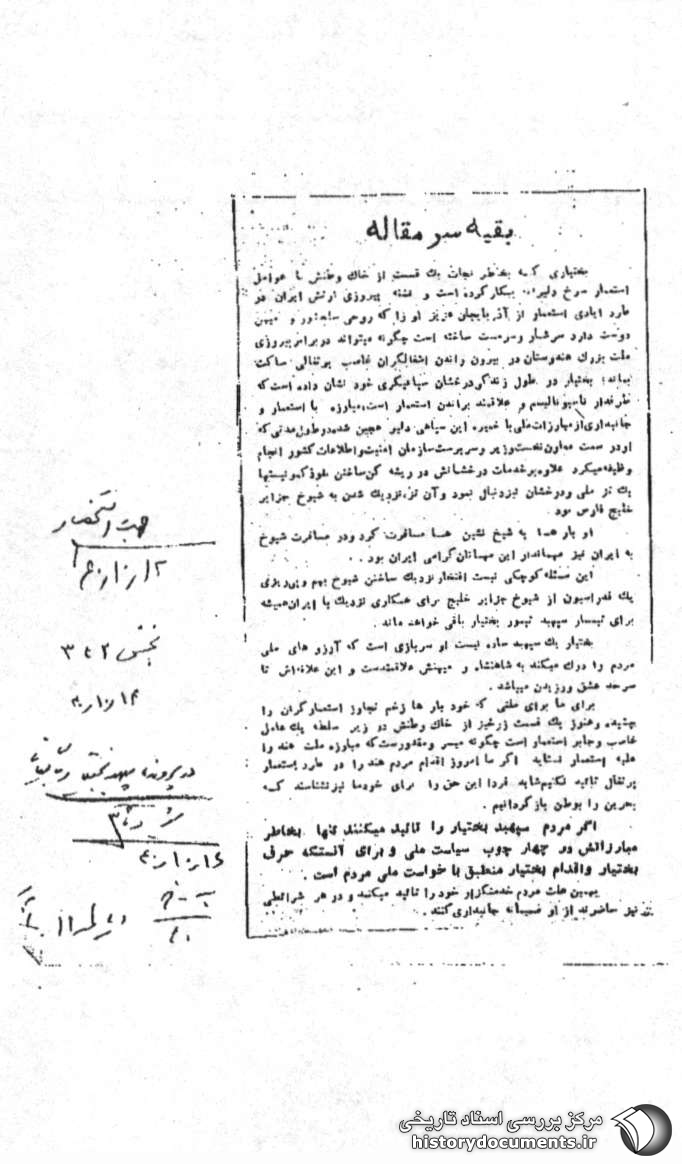 بقیه سر مقاله
بختیاری که بخاطر نجات یك قسمت از خاك وطنش با عوامل
استعمار سرخ دلیرانه پیکار کرده است و نقشه پیروزی ارتش ایران در
طرد ایادی استعمار از آذربایجان عزیز او را که روحی سلحشور و میهن
دوست دارد سرشار و سرمست ساخته است چگونه میتواند در برابر پیروزی
ملت بزرك هندوستان در بیرون راندن اشغالگران غاصب پرتغالی ساکت
بماند؛ بختیار در طول زندگی درخشان سپاهیگری خود نشان داده است که
طرفدار ناسیونالیسم و علاقمند براندن استعمار است، مبارزه با استعمار و
جانبداری از مبارزات ملی با خمیره این سپاهی دلیر عجین شده و در طول مدتی که
او در سمت معاون نخست وزیر و سرپرست سازمان امنیت و اطلاعات کشور انجام
وظیفه میکرد علاوه بر خدمات درخشانش در ریشه کن ساختن نفوذ کمونیستها
یك تز ملی و درخشان نیز دنبال نمود و آن تز، نزدیك شدن به شیوخ جزایر
خلیج فارس بود
او بارها به شیخ نشین ها مسافرت کرد و در مسافرت شیوخ
به ایران نیز مهماندار این مهمانان گرامی ایران بود . .
این مسئله کوچکی نیست افتخار نزدیك ساختن شیوخ بهم و پی ریزی
یك فدراسیون از شیوخ جزایر خلیج برای همکاری نزدیك با ایران همیشه
برای تیمسار سپهبد تیمور بختیار باقی خواهد ماند .
بختیار یك سپهبد ساده نیست او سربازی است که آرزو های ملی
مردم را درك میکند به شاهنشاه و میهنش علاقمندست و این علاقه اش تا
سرحد عشق ورزیدن میباشد .
برای ما برای ملتی که خود بار ها زخم تجاوز استعمارگران را
چشیده و هنوز یك قسمت زرخیز از خاك وطنش در زیر سلطه یك عامل
غاصب و جابر استعمار است چگونه میسر و مقدورست که مبارزه ملت هند را
علیه استعمار نستاید اگر ما امروز اقدام مردم هند را در طرد استعمار
پرتغال تائید نکنیم شاید فردا این حق را برای خود ما نیز نشناسند که
بحرین را بوطن باز گردانیم .
اگر مردم سپهبد بختیار را تائید میکنند تنها بخاطر
مبارزاتش در چهار چوب سیاست ملی و برای آنستکه حرف
بختیار واقدام بختیار منطبق با خواست ملی مردم است .
بهمین علت مردم خدمتگزار خود را تائید میکنند و در هر شرائطی
نیز حاضرند از او صمیمانه جانبداری کنند .
جهت استحضار
بخش ۳۴۲
در پرونده سپهبد بختیار بایگانی
مرکز بررسی اسناد تاریخی
historydocuments.ir